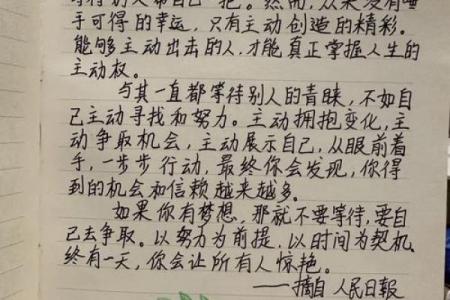 等待别人帮自己一把。然而，从来没有唾
手可得的幸运，只有主动创造的精彩。
能够主动出击的人，才能真正掌握人生的
主动权。
与其一直都等待别人的青睐，不如自
己主动寻找和努力。主动拥抱变化，主
动争取机会，主动展示自己，从眼前着
手，一步步行动，最终你会发现，你得
到的机会和信赖越来越多。
如果你有梦想，那就不要等待，要自
己去争取。以努力为前提，以时间为契机，
终有一天，你会让所有人惊艳。
——摘自人民日报